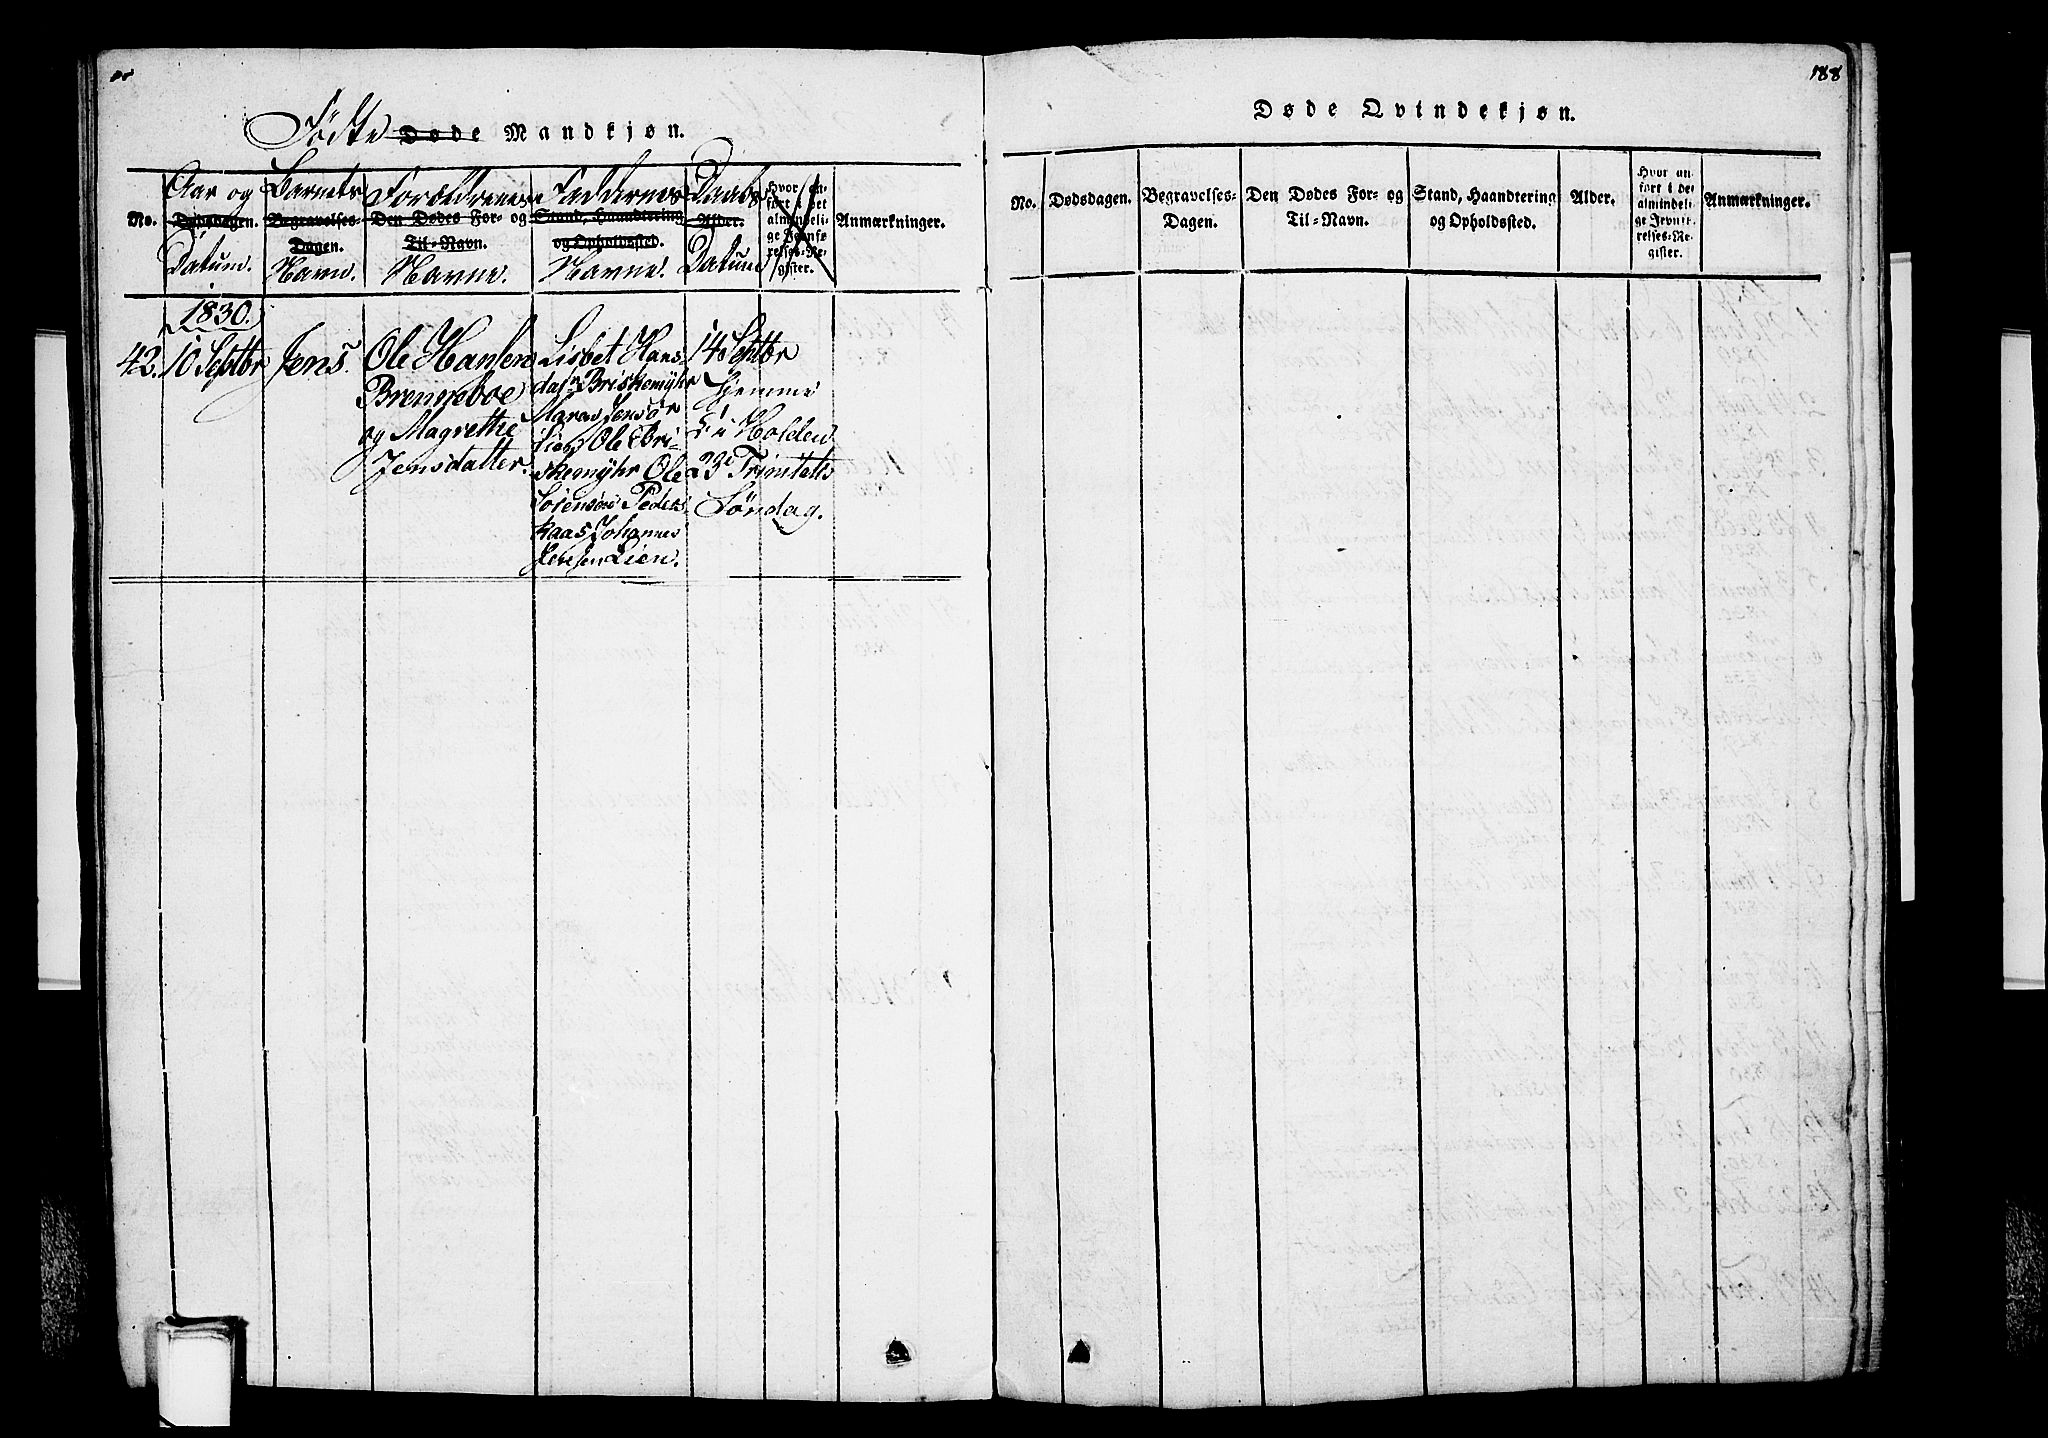 188
Fødte Døde Mandkjøn.
No.
Aar og
Dødsdagen.
Datum.
Barnets
Begravelses-
Dagen.
Navn.
Forældrenes
Den Dødes For- og
Til-Navn.
Navne.
Faddernes
Stand, Haandtering
og Opholdssted.
Navne.
Daabs
Alder.
Datum
Hvor an-
ført i det
almindeli-
ge Jevnfø-
relses-Re-
gister.
Anmærkninger.
1830.
42.
10 Septbr
Jens.
Ole Hansen
Brenneboe
og Magrethe
Jensdatter.
Lisbet Hans-
datr Briskemyhr
Maren Jensdr
Lien Ole Bri-
skemyhr Ole
Sørensen Peders-
kaas Johannes
Jensen Lien.
14 Septbr
hjemme
i Holden
23e Trinitatis
Søndag.
Døde Qvindekjøn.
No.
Dødsdagen.
Begravelses-
Dagen.
Den Dødes For- og
Til-Navn.
Stand, Haandtering
og Opholdssted.
Alder.
Hvor an-
ført i det
almindeli-
ge Jevnfø-
relses-Re-
gister.
Anmærkninger.